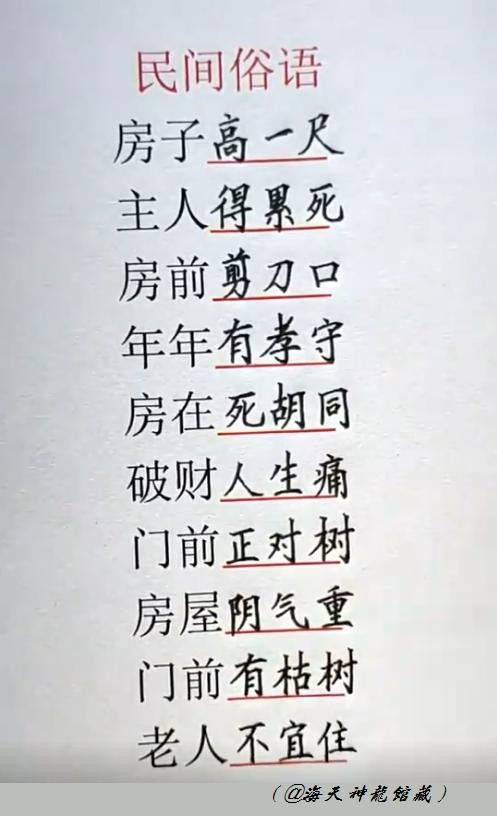 民间俗语
房子高一尺
主人得累死
房前剪刀口
年年有孝守
房在死胡同
破财人生痛
门前正对树
房屋阴气重
门前有枯树
老人不宜住
（@海天神龍館藏）